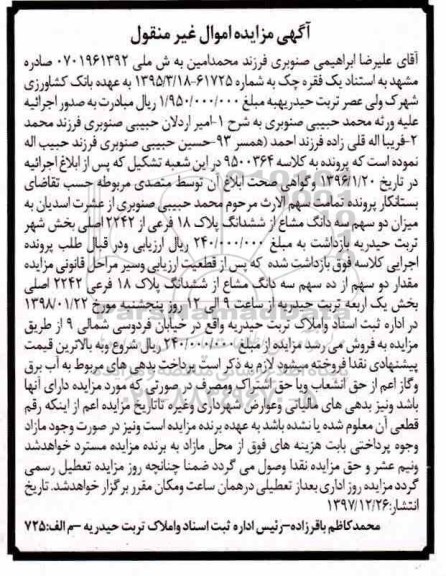 آگهی مزایده اموال غیر منقول
آقای علیرضا ابراهیمی صنوبری فرزند محمدامین به ش ملی ۰۷۰۱۹۶۱۳۹۲ صادره
مشهد به استناد یک فقره چک به شماره ۶۱۷۲۵-۱۳۹۵/۳/۱۸ به عهده بانک کشاورزی
شهرک ولی عصر تربت حیدریه مبلغ ۱/۹۵۰/۰۰۰/۰۰۰ ریال مبادرت به صدور اجرائیه
علیه ورثه محمد حبیبی صنوبری به شرح ۱-امیر اردلان حبیبی صنوبری فرزند محمد
۲-فریبا اله قلی زاده فرزند احمد (همسر ۹۳-حسین حبیبی صنوبری فرزند حبیب اله
نموده است که پرونده به کلاسه ۹۵۰۰۳۶۴ در این شعبه تشکیل که پس از ابلاغ اجرائیه
در تاریخ ۱۳۹۶/۱/۲۰ وگواهی صحت ابلاغ آن توسط متصدی مربوطه حسب تقاضای
بستانکار پرونده تمامت سهم الارث مرحوم محمد حبیبی صنوبری از عشرت اسدیان به
میزان دو سهم سه دانگ مشاع از ششدانگ پلاک ۱۸ فرعی از ۲۲۴۲ اصلی بخش شهر
تربت حیدریه بازداشت به مبلغ ۲۴۰/۰۰۰/۰۰۰ ریال ارزیابی ودر قبال طلب پرونده
اجرایی کلاسه فوق بازداشت شده که پس از قطعیت ارزیابی وسیر مراحل قانونی مزایده
مقدار دو سهم از ده سهم سه دانگ مشاع از ششدانگ پلاک ۱۸ فرعی از ۲۲۴۲ اصلی
بخش یک اربعه تربت حیدریه از ساعت ۹ الی ۱۲ روز پنجشنبه مورخ ۱۳۹۸/۰۱/۲۲
در اداره ثبت اسناد واملاک تربت حیدریه واقع در خیابان فردوسی شمالی ۹ از طریق
مزایده به فروش می رسد مزایده از مبلغ ۲۴۰/۰۰۰/۰۰۰ ریال شروع وبه بالاترین قیمت
پیشنهادی نقدا فروخته میشود لازم به ذکر است پرداخت بدهی های مربوط به آب برق
وگاز اعم از حق انشعاب ویا حق اشتراک ومصرف در صورتی که مورد مزایده دارای آنها
باشد ونیز بدهی های مالیاتی وعوارض شهرداری وغیره تاتاریخ مزایده اعم از اینکه رقم
قطعی آن معلوم شده یا نشده باشد به عهده برنده مزایده است ونیز در صورت وجود مازاد
وجوه پرداختی بابت هزینه های فوق از محل مازاد به برنده مزایده مسترد خواهدشد
ونیم عشر و حق مزایده نقدا وصول می گردد ضمنا چنانچه روز مزایده تعطیل رسمی
گردد مزایده روز اداری بعداز تعطیلی درهمان ساعت ومکان مقرر برگزار خواهدشد. تاریخ
انتشار:۱۳۹۷/۱۲/۲۶
محمدکاظم باقرزاده-رئیس اداره ثبت اسناد واملاک تربت حیدریه -م الف:۷۲۵